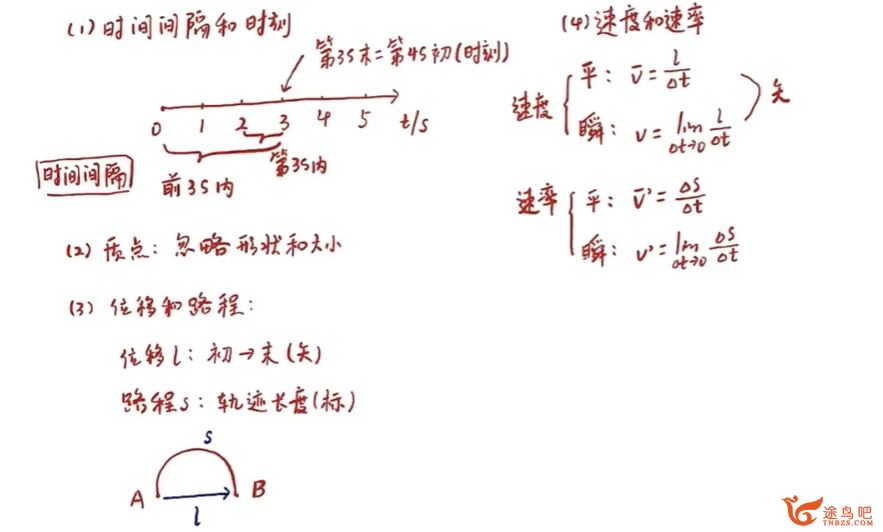 (1) 时间间隔和时刻
第3S末=第4S初(时刻)
0 1 2 3 4 5 t/s
时间间隔
前3S内
第3S内
(2) 质点：忽略形状和大小
(3) 位移和路程：
位移l：初→末(矢)
路程s：轨迹长度(标)
s
A B
l
(4) 速度和速率
速度
平：v̅=l/Δt
瞬：v=lim Δt→0 l/Δt
矢
速率
平：v̅'=ΔS/Δt
瞬：v'=lim Δt→0 ΔS/Δt
途鸟吧
TNBZS.COM